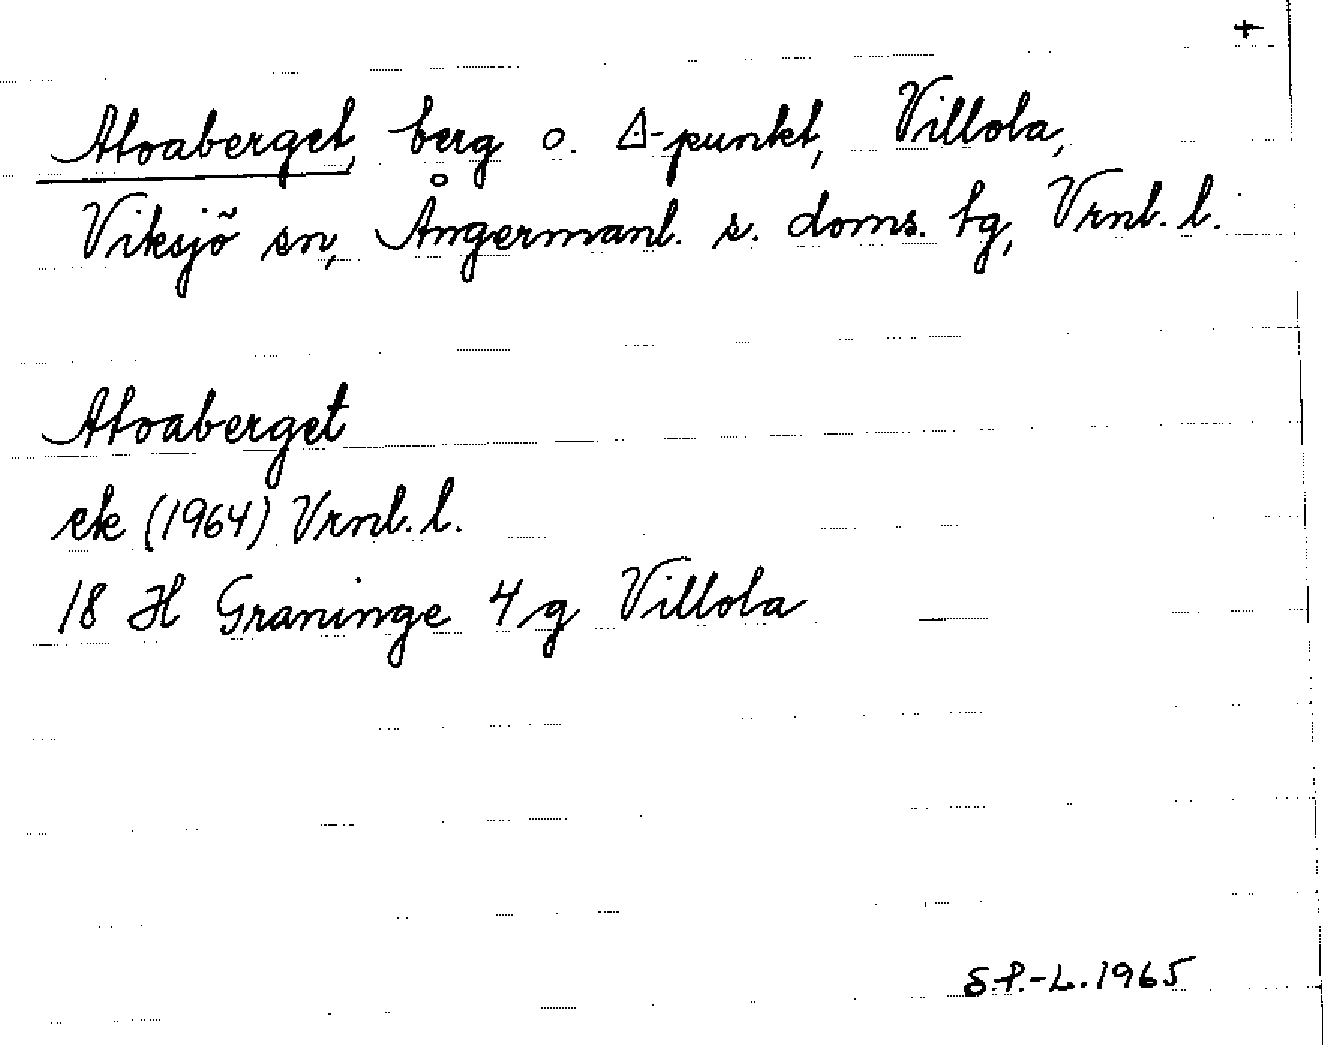 +
Aloaberget, berg o. △-punkt, Villola,
Viksjö sn, Ångermanl. s. doms. tg, Vrnl. l.
Aloaberget
ek (1964) Vrnl. l.
18 H Graninge 4 g Villola
S.P.-L. 1965